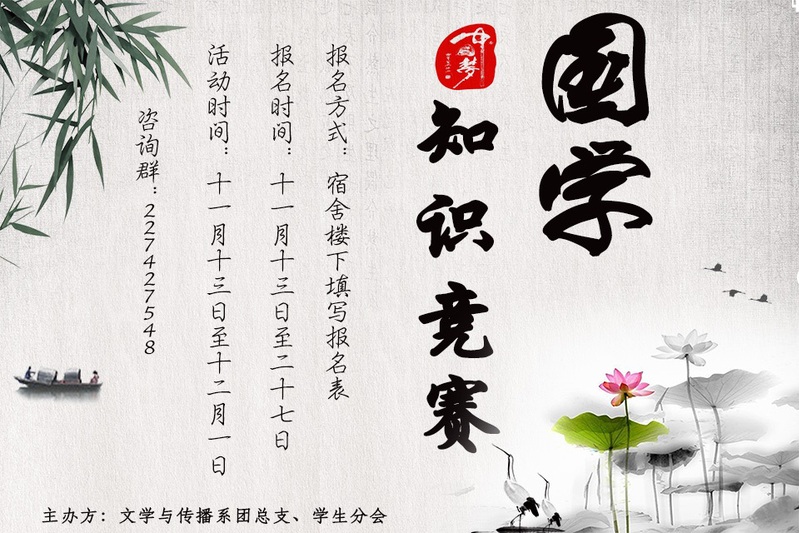 国学
中国梦
知识竞赛
报名方式：宿舍楼下填写报名表
报名时间：十一月十三日至二十七日
活动时间：十一月十三日至十二月一日
咨询群：227427548
主办方：文学与传播系团总支、学生分会